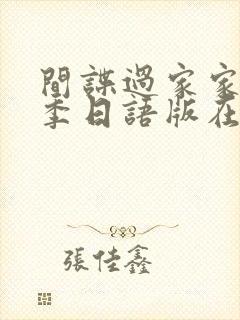 間諜過家家
季日語版在
張佳鑫